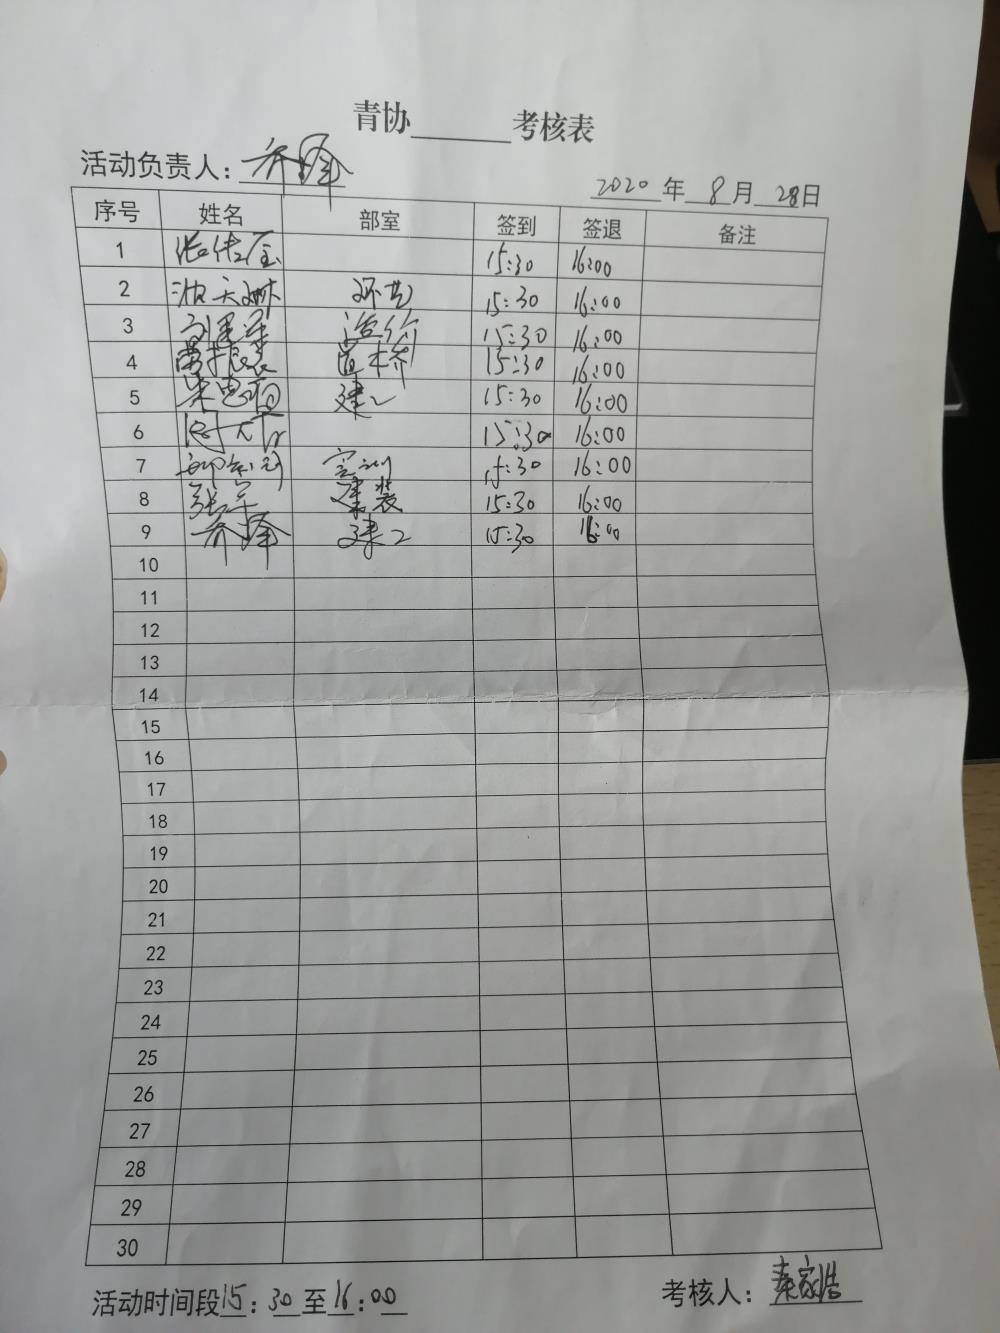 青协______考核表
活动负责人：乔峰
2020年8月28日
序号 姓名 部室 签到 签退 备注
1 15:30 16:00
2 环艺 15:30 16:00
3 造价 15:30 16:00
4 道桥 15:30 16:00
5 建2 15:30 16:00
6 15:30 16:00
7 15:30 16:00
8 张宇 建装 15:30 16:00
9 建2 15:30 16:00
10
11
12
13
14
15
16
17
18
19
20
21
22
23
24
25
26
27
28
29
30
活动时间段15:30至16:00 考核人：秦家浩